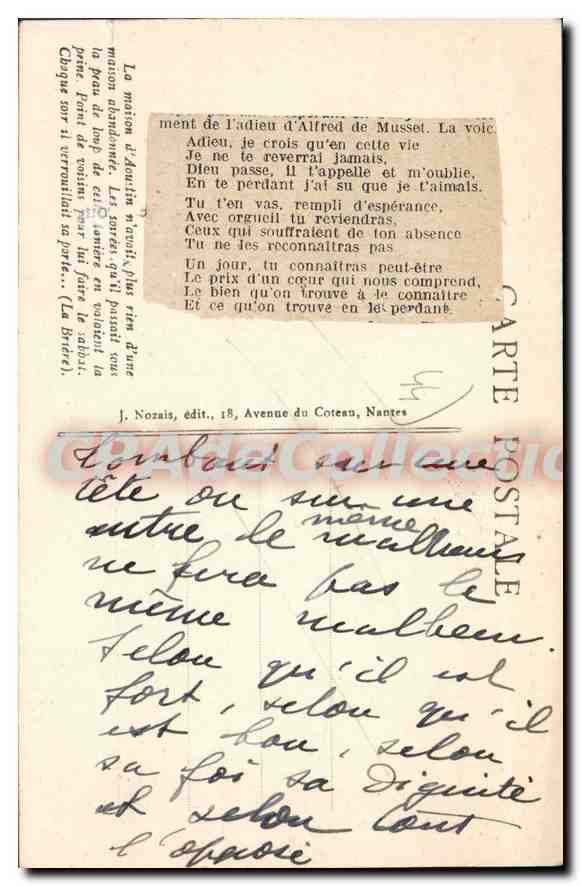 La maison d'Aoustin n'avait plus rien d'une
maison abandonnée. Les soirées qu'il passait sous
la peau de loup de cette tanière en valaient la
peine. Point de voisins pour lui faire le sabbat.
Chaque soir il verrouillait sa porte... (La Brière).
ment de l'adieu d'Alfred de Musset. La voic
Adieu, je crois qu'en cette vie
Je ne te reverrai jamais,
Dieu passe, il t'appelle et m'oublie,
En te perdant j'ai su que je t'aimais.
Tu t'en vas, rempli d'espérance,
Avec orgueil tu reviendras,
Ceux qui souffraient de ton absence
Tu ne les reconnaîtras pas
Un jour, tu connaîtras peut-être
Le prix d'un cœur qui nous comprend,
Le bien qu'on trouve à le connaître
Et ce qu'on trouve en le perdant.
CARTE POSTALE
44
J. Nozais, édit., 18, Avenue du Coteau, Nantes
CPA de Collection
Tombant sur une
tête ou sur une
autre le même malheur
ne fera pas le
même malheur.
Selon qu'il est
fort, selon qu'il
est bon, selon
sa foi sa Dignité
et selon tout
l'opposé